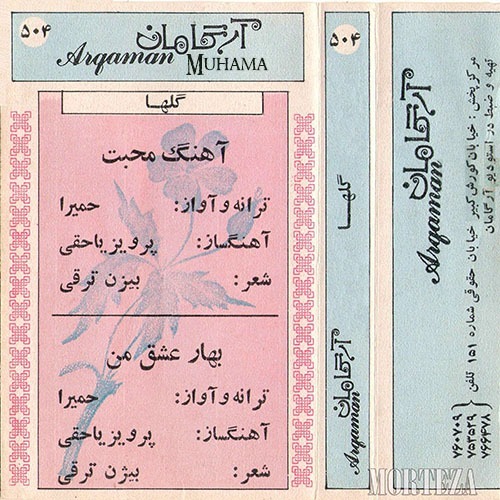 ۵۰۴
آرگامان
Arqaman MUHAMA
گلها
آهنگ محبت
ترانه و آواز: حمیرا
آهنگساز: پرویز یاحقی
شعر: بیژن ترقی
بهار عشق من
ترانه و آواز: حمیرا
آهنگساز: پرویز یاحقی
شعر: بیژن ترقی
۵۰۴
گلها
آرگامان
Arqaman
آرگامان
Arqaman
تهیه و ضبط در استودیو آرگامان
مرکز پخش: خیابان کورش کبیر خیابان حقوقی شماره ۱۵۱ تلفن
۷۶۰۷۰۹
۷۵۳۵۲۹
۷۶۶۴۷۸
MORTEZA